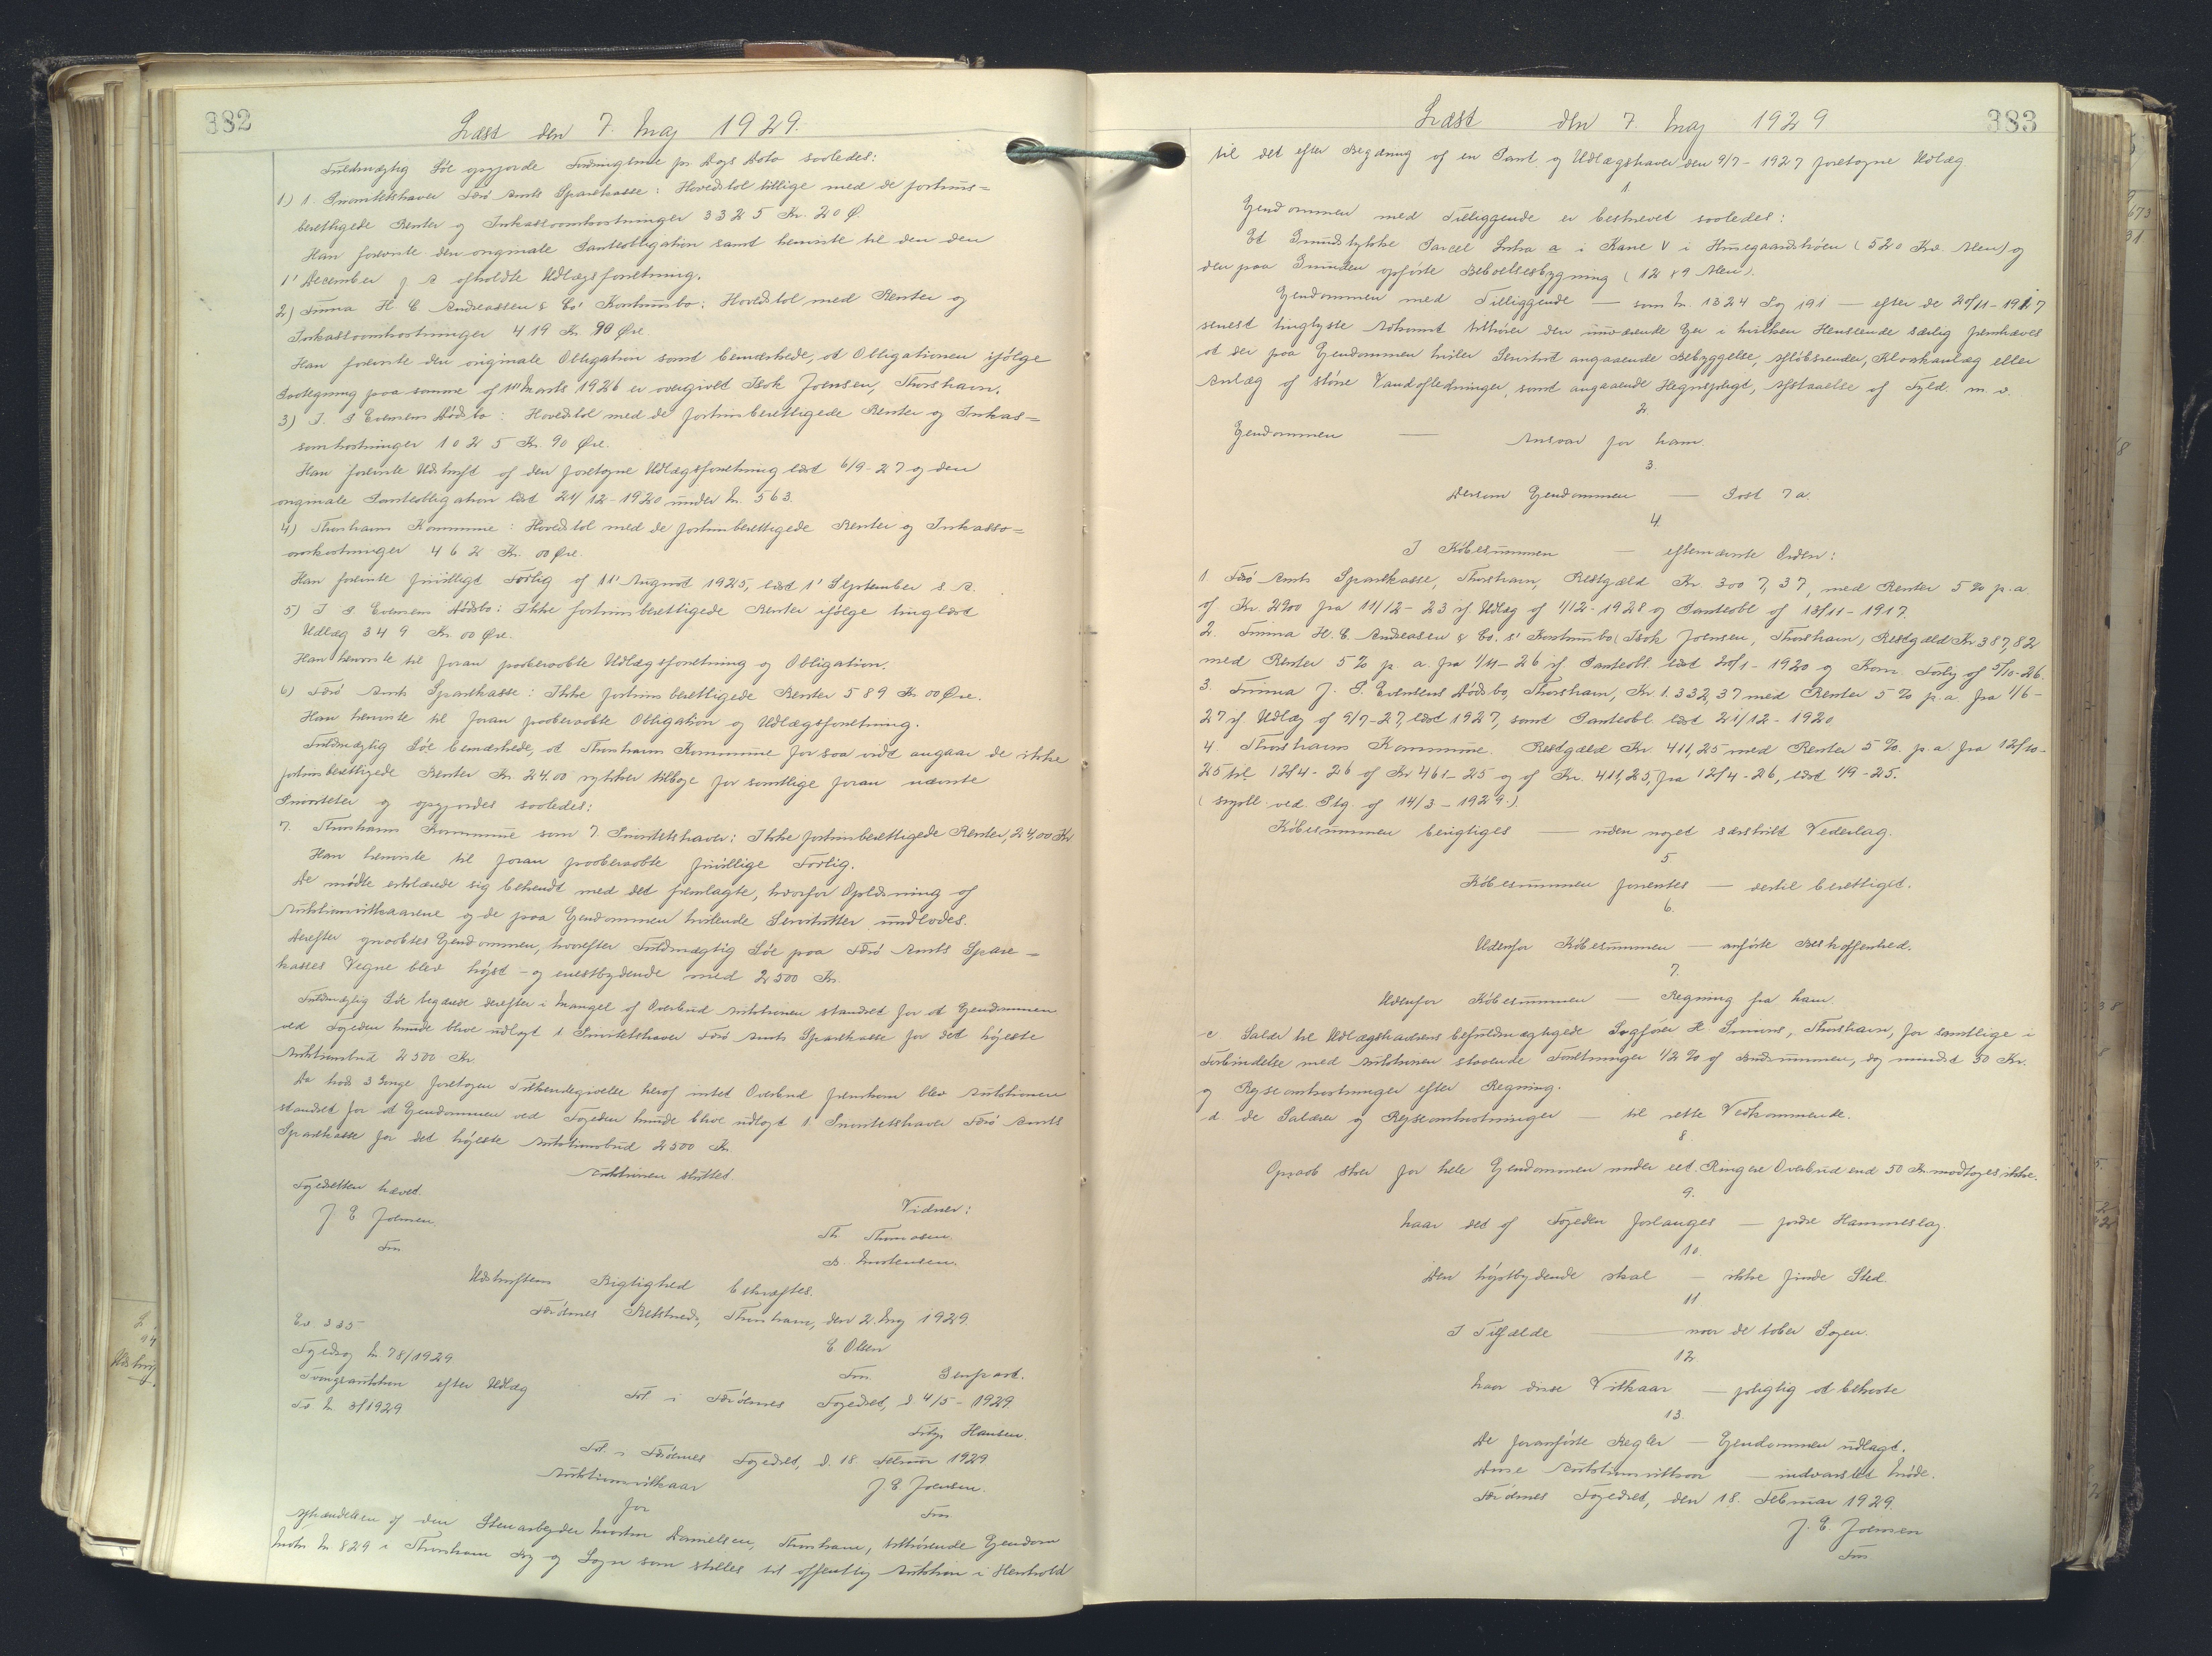 382
Læst den 7. Maj 1929.
Fuldmægtig Löe opgjorde Fordringerne pr Dags Dato saaledes:
1) 1. Prioritetshaver Færö Amts Sparekasse: Hovedstol tillige med de fortrins=
berettigede Renter og Inkassoomkostninger 3325 Kr. 20 Ø.
Han foreviste den originale Panteobligation samt henviste til den den
1' December f A afholdte Udlægsforretning.
2) Firma H C Andreassen & Co' Konkursbo: Hovedstol med Renter og
Inkassoomkostninger 419 Kr. 90 Øre
Han foreviste den originale Obligation samt bemærkede, at Obligationen ifølge
Paategning paa samme af 11' Marts 1926 er overgivet Isak Joensen, Thorshavn.
3) J. P Evensens Dödsbo: Hovedstol med de fortrinsberettigede Renter og Inkas=
soomkostninger 1025 Kr. 90 Øre.
Han foreviste Udskrift af den foretagne Udlægsforretning læst 6/9-27 og den
originale Panteobligation læst 21/12-1920 under Nr. 563.
4) Thorshavns Kommune: Hovedstol med de fortrinsberettigede Renter og Inkasso=
omkostninger 462 Kr. 00 Øre.
Han foreviste frivilligt Forlig af 11' August 1925, læst 1' September s. A.
5) J P Evensens Dödsbo: Ikke fortrinsberettigede Renter ifølge tinglæst
Udlæg 349 Kr. 00 Øre.
Han henviste til foran paaberaabte Udlægsforretning og Obligation.
6) Færö Amts Sparekasse: Ikke fortrinsberettigede Renter 589 Kr 00 Øre.
Han henviste til foran paaberaabte Obligation og Udlægsforretning.
Fuldmægtig Löe bemærkede, at Thorshavns Kommune for saa vidt angaar de ikke
fortrinsberettigede Renter Kr. 24.00 rykker tilbage for samtlige foran nævnte
Prioriteter og opgjordes saaledes:
7. Thorshavns Kommune som 7. Prioritetshaver: Ikke fortrinsberettigede Renter, 24,00 Kr
Han henviste til foran paaberaabte frivillige Forlig.
De mödte erklærede sig bekendt med det fremlagte, hvorfor Oplæsning af
Auktionsvilkaarene og de paa Ejendommen hvilende Servitutter undlodes.
Derefter opraabtes Ejendommen, hvorefter Fuldmægtig Löe paa Færö Amts Spare-
kasses Vegne blev højst- og enestbydende med 2500 Kr.
Fuldmægtig Löe begærede derefter i Mangel af Overbud Auktionen standset for at Ejendommen
ved Fogeden kunde blive udlagt 1 Prioritetshaver Færö Amts Sparekasse for det højeste
Auktionsbud 2500 Kr.
Da trods 3 Gange foretagen Tilkendegivelse heraf intet Overbud fremkom blev Auktionen
standset for at Ejendommen ved Fogeden kunde blive udlagt 1' Prioritetshaver Færö Amts
Sparekasse for det højeste Auktionsbud 2500 Kr.
Auktionen sluttet.
Fogedretten hævet.
J. E Joensen
Fm
Vidner:
Th. Thomasen.
D. Mortensen.
Udskriftens Rigtighed bekræftes.
Færöernes Retskreds, Thorshavn, den 2. Maj 1929
E Olsen
Fm. Genpart.
Ev. 335.
Fogedsag Nr 78/1929
Tvangsauktion efter Udlæg
Fo Nr. 3/1929
Fol i Færöernes Fogedret, d 4/5-1929
Fritjs Hansen.
Fol. i Færöernes Fogedret, d. 18. Februar 1929
J. E Joensen.
Fm
Auktionsvilkaar
for
Afhændelsen af den Stenarbejder Morten Danielsen, Thorshavn, tilhørende Ejendom
Matr. Nr. 829 i Thorshavn By og Sogn som stilles til offentlig Auktion i Henhold
383
Læst den 7. Maj 1929
til det efter Begæring af en Pant og Udlægshaver den 9/7-1927 foretagne Udlæg.
1
Ejendommen med Tilliggende er beskrevet saaledes:
Et Grundstykke Parcel Litra a i Kane V i Husegaardstróen (520 Kv. Alen) og
den paa Grunden opførte Beboelsesbygning (12 x 9 Alen).
Ejendommen med Tilliggende — som Nr. 1324 Pag 191 — efter de 20/11-1917
senest tinglyste Adkomst tilhører den nuværende Ejer i hvilken Henseende særlig fremhæves
at der paa Ejendommen hviler Servitut angaaende Bebyggelse, Afløbsrender, Kloakanlæg eller
Anlæg af større Vandafledninger, samt angaaende Hegnspligt, Afstaaelse af Fyld. m. v.
2.
Ejendommen — Ansvar for ham.
3.
Dersom Ejendommen — Post 7a.
4.
I Købesummen — efternævnte Orden:
1. Færö Amts Sparekasse, Thorshavn, Restgæld Kr. 3007,37, med Renter 5% p.a.
af Kr. 2900 fra 11/12-23 if. Udlæg af 1/12-1928 og Panteobl af 13/11-1917.
2. Firma H. C. Andreasen & Co. s' Konkursbo (Isak Joensen, Thorshavn, Restgæld Kr 387,82
med Renter 5% p. a. fra 1/11-26 if. Panteobl. læst 20/1-1920 og Kom. Forlig af 5/10-26.
3. Firma J. P. Evensens Dödsbo, Thorshavn, Kr. 1.332,37 med Renter 5% p.a. fra 1/6-
27 if Udlæg af 9/7-27, læst 1927, samt Panteobl læst 21/12-1920
4. Thorshavns Kommune. Restgæld Kr 411,25 med Renter 5%. p. a. fra 12/10-
25 til 12/4-26 af Kr 461-25 og af Kr. 411,25, fra 12/4-26, læst 1/9-25.
( ved. Ptg. af 14/3-1929.).
Købesummen berigtiges — uden noget særskilt Vederlag.
5
Købesummen forrentes — dertil berettiget.
6.
Udenfor Købesummen — anførte Beskaffenhed.
7.
Udenfor Købesummen — Regning fra ham.
c Salær til Udlægshaverens befuldmægtigede Sagfører H. Simuns, Thorshavn, for samtlige i
Forbindelse med Auktionen staaende Forretninger 1/2% af Budsummen, dog mindst 50 Kr.
og Rejseomkostninger efter Regning.
d. de Salærer og Rejseomkostninger — til rette Vedkommende.
8.
Opraab sker for hele Ejendommen under eet. Ringere Overbud end 50 Kr. modtages ikke.
9.
Naar det af Fogeden forlanges — fordre Hammeslag.
10.
Den højstbydende skal — ikke finde Sted.
11
I Tilfælde — naar de taber Sagen.
12
Naar disse Vilkaar — pligtig at bekoste
13.
De foranførte Regler — Ejendommen udlagt.
Disse Auktionsvilkaar — indvarslet Møde.
Færöernes Fogedret, den 18. Februar 1929.
J. E Joensen
Fm